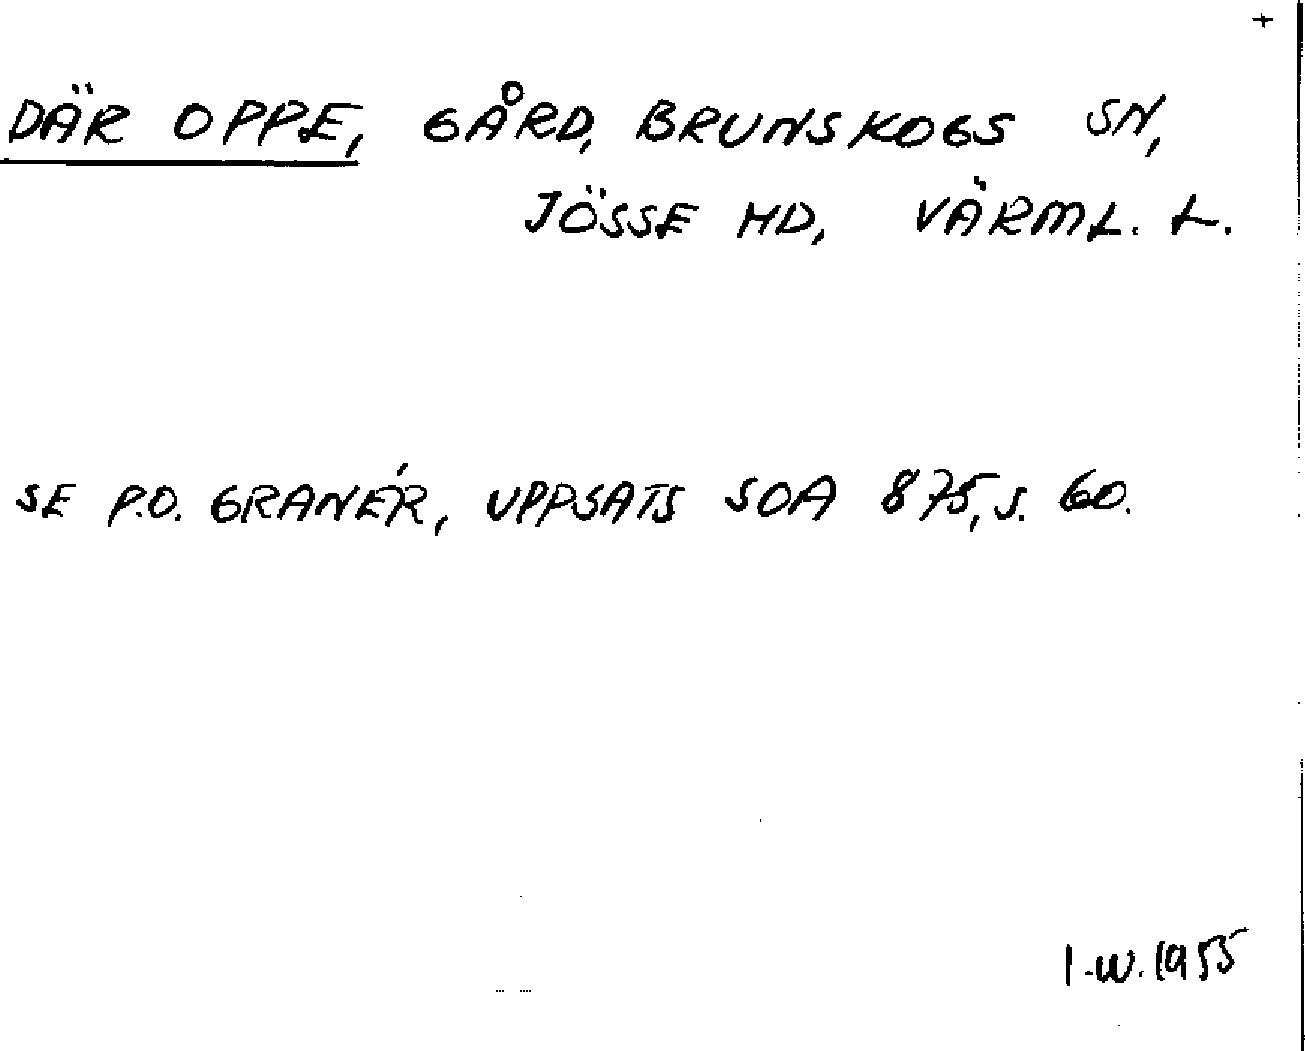 +
DÄR OPPE, GÅRD, BRUNSKOGS SN,
JÖSSE HD, VÄRML. L.
SE P.O. GRANÉR, UPPSATS SOA 875, S. 60.
I.W. 1955